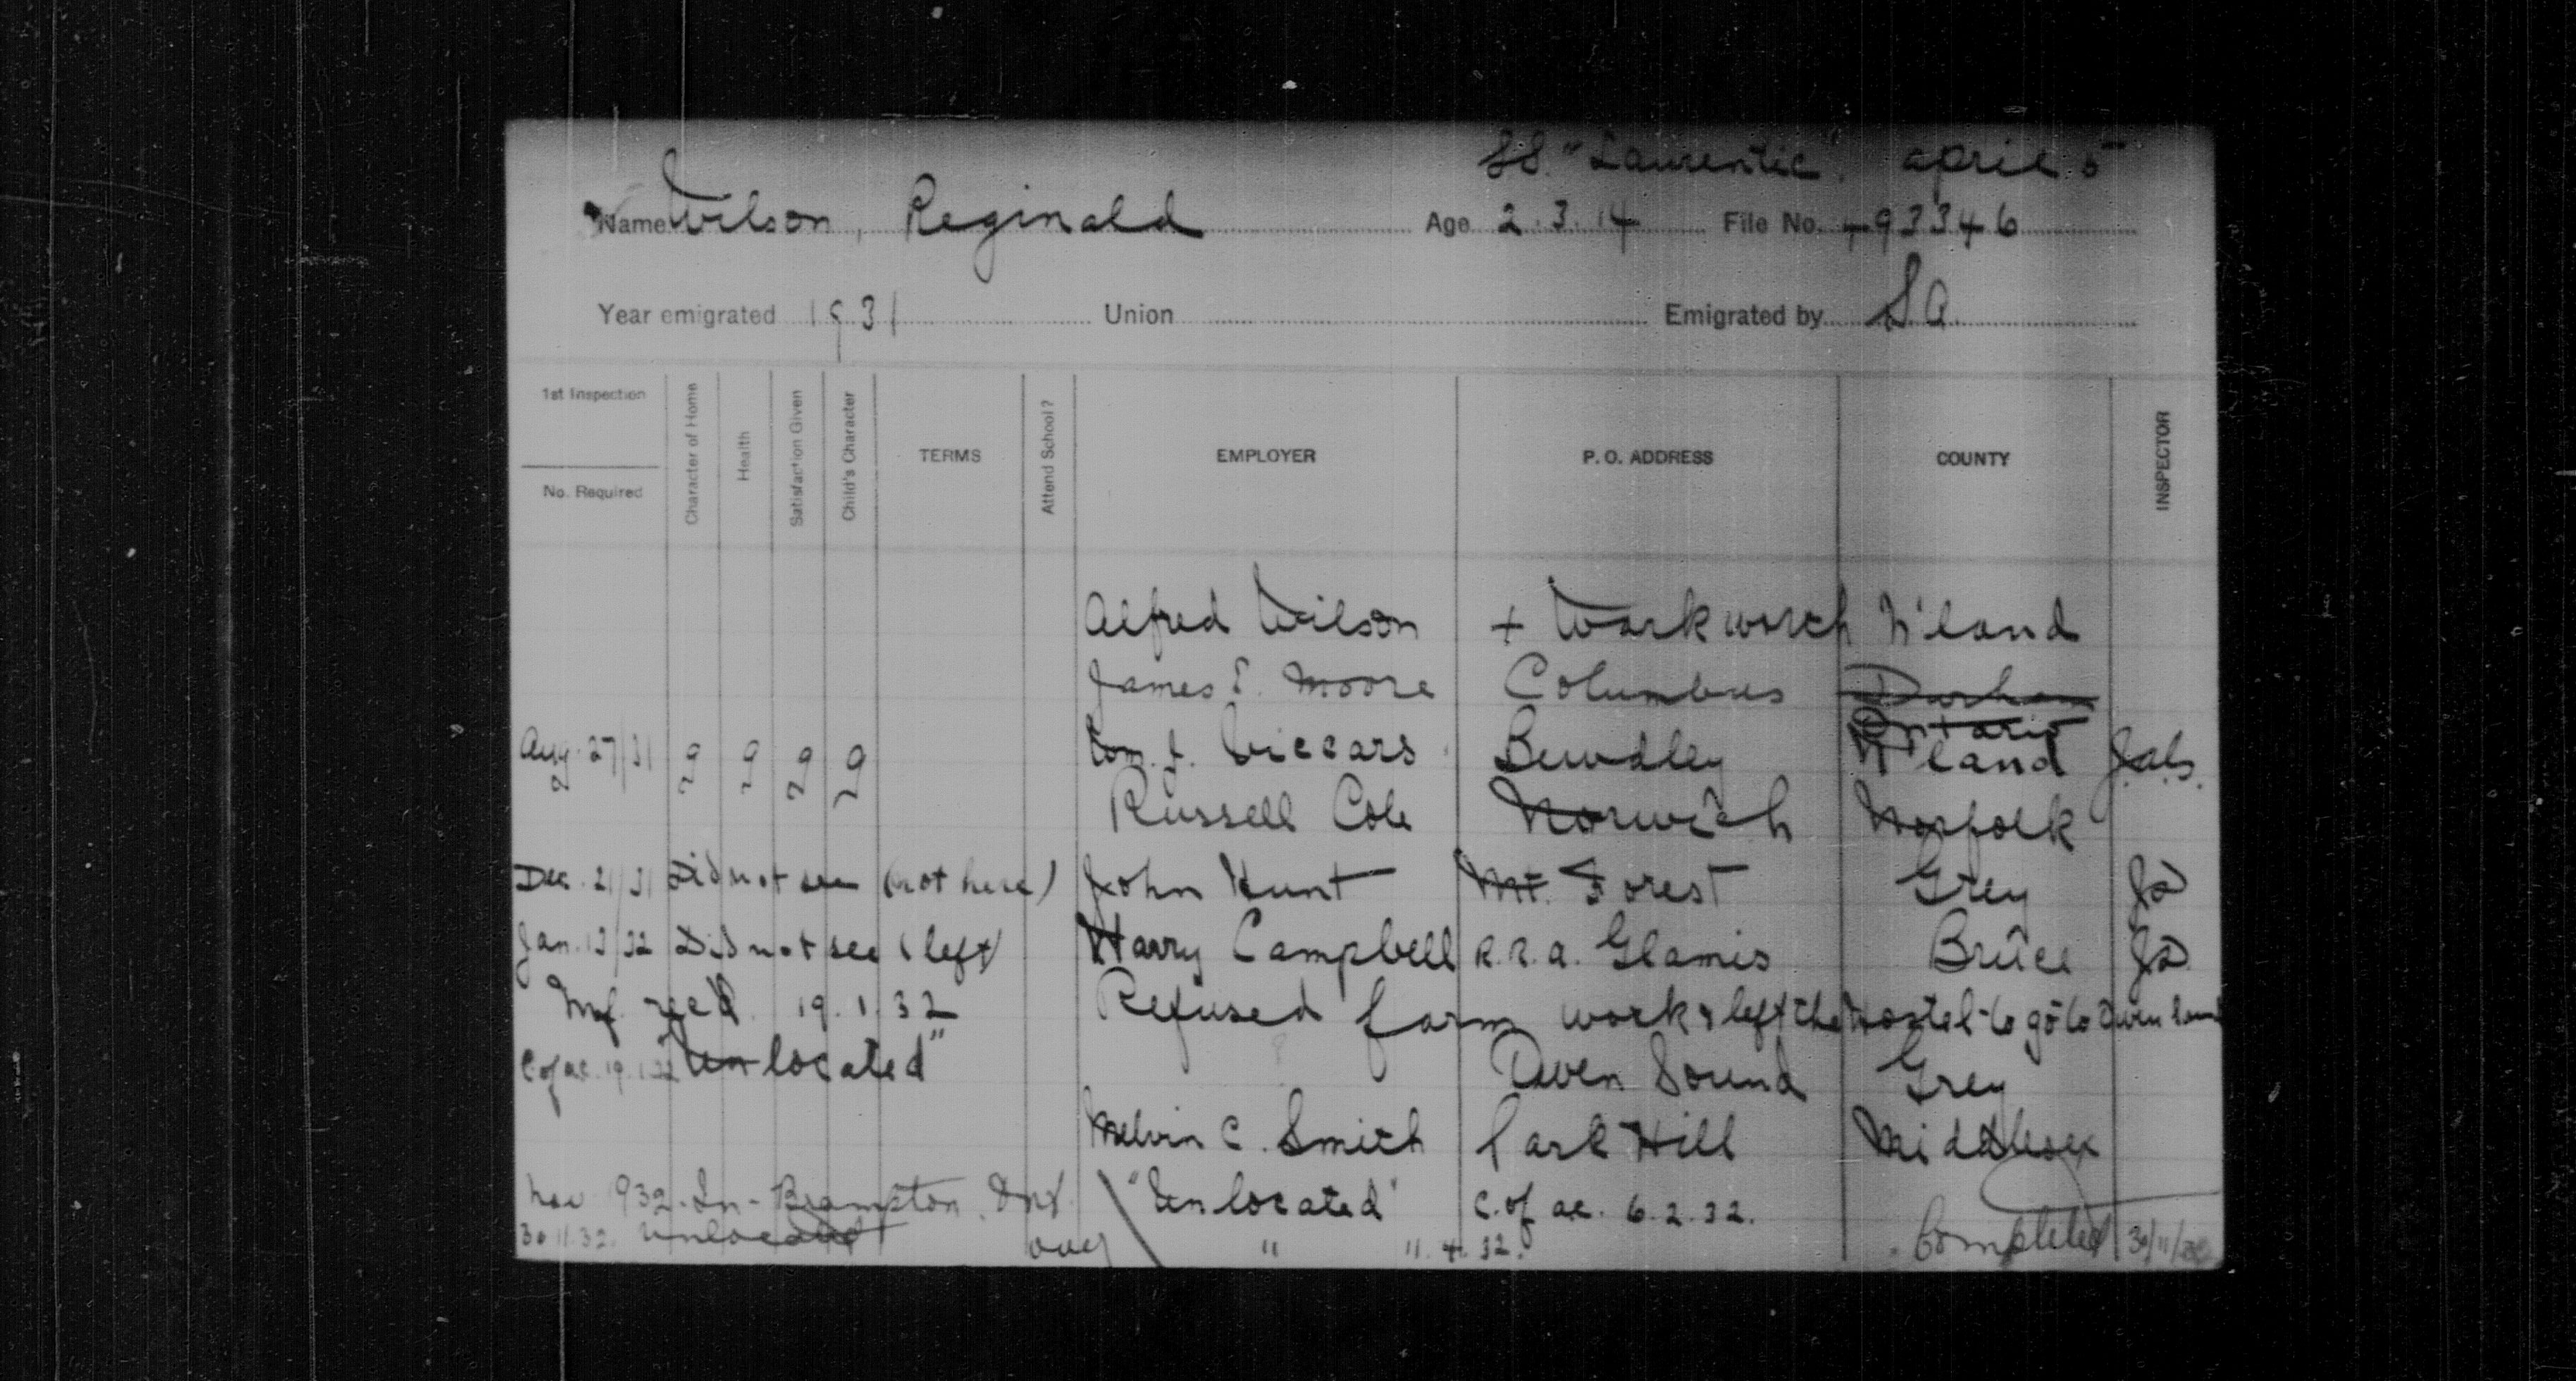 SS. "Laurentic". April 5
Name Wilson, Reginald Age 2.3.14 File No. 493346
Year emigrated 1931 Union Emigrated by S.A.
1st Inspection
No. Required
Character of Home
Health
Satisfaction Given
Child's Character
TERMS
Attend School?
EMPLOYER
P. O. ADDRESS
COUNTY
INSPECTOR
Alfred Wilson + Warkworth N'land
James E. Moore Columbus Durham
Ontario
Aug. 27/31 g g g g Wm. J. Viccars Bewdley N'land
Russell Cole Norwich Norfolk
Dec. 21/31 Did not see (not here) John Hunt Mt. Forest Grey
Jan. 13/32 Did not see (left) Harry Campbell R.R.2. Glamis Bruce
rec'd. 19.1.32 Refused farm work & left the Hostel to go to Owen Sound
C of ac. 19.1.32 "Unlocated" Owen Sound Grey
Melvin C. Smith Park Hill Middlesex
Nov 932 - In - Brampton. Ont. "Unlocated" C. of ac. 6.2.32.
30.11.32. Unlocated over " 11.4.32. Completed 30/11/32